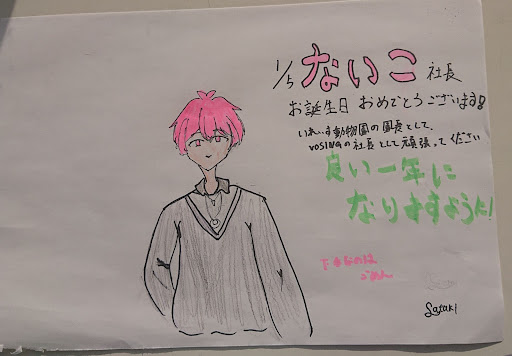 1/5 ないこ 社長
お誕生日 おめでとうございます!!
いれいす動物園の園長として、
VOISINGの社長として頑張ってください
良い一年に
なりますように!
下手なのは
ごめん